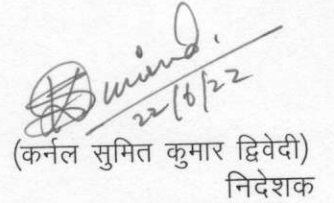 22/6/22
(कर्नल सुमित कुमार द्विवेदी)
निदेशक